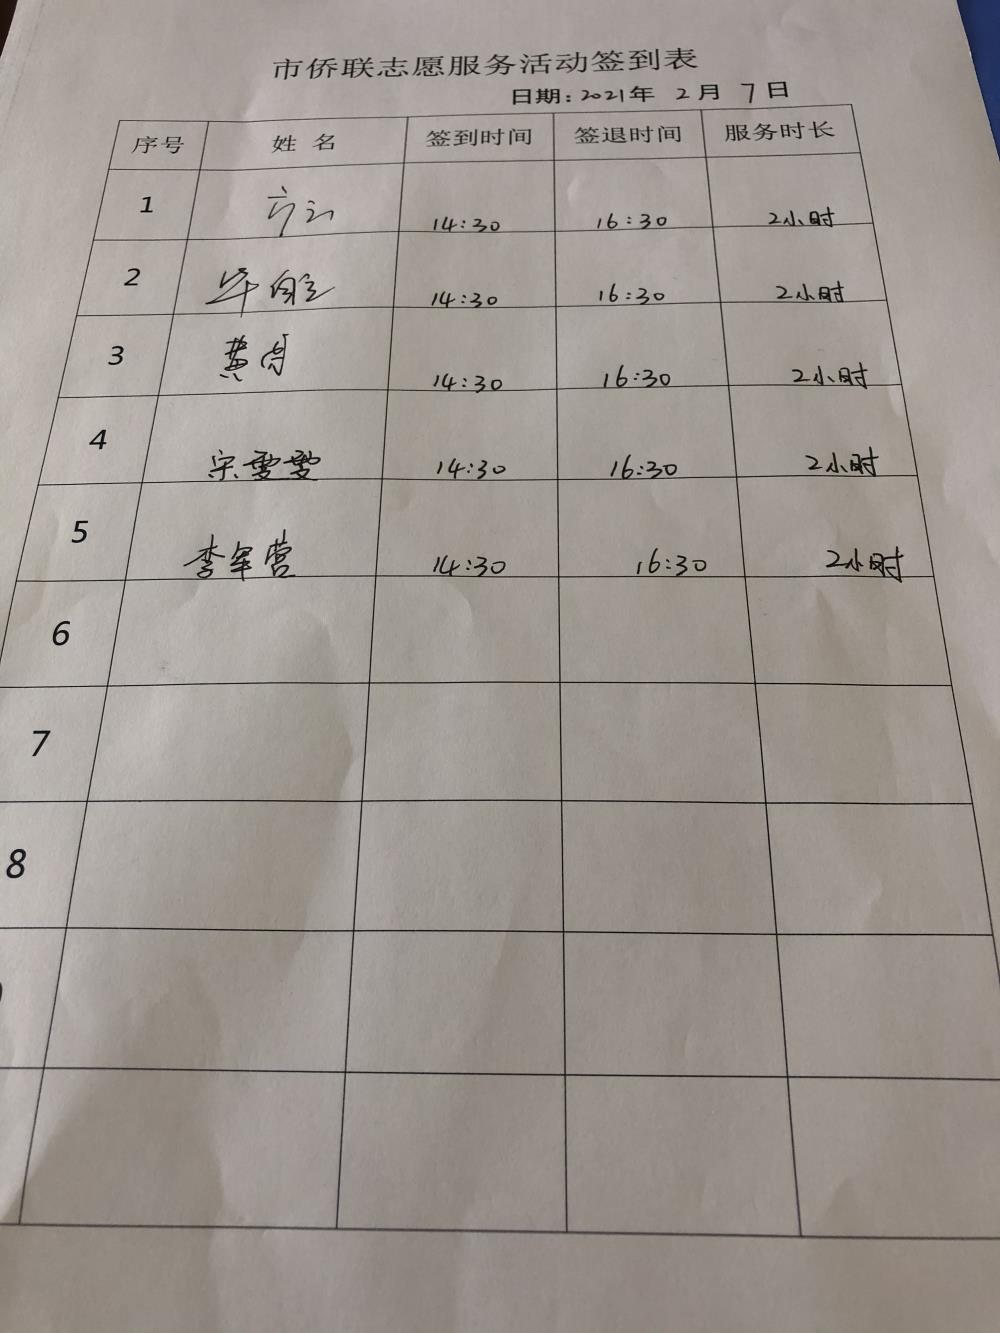 市侨联志愿服务活动签到表
日期：2021年 2月 7日
序号 姓名 签到时间 签退时间 服务时长
1 14:30 16:30 2小时
2 14:30 16:30 2小时
3 黄 14:30 16:30 2小时
4 宋雯雯 14:30 16:30 2小时
5 李军营 14:30 16:30 2小时
6
7
8